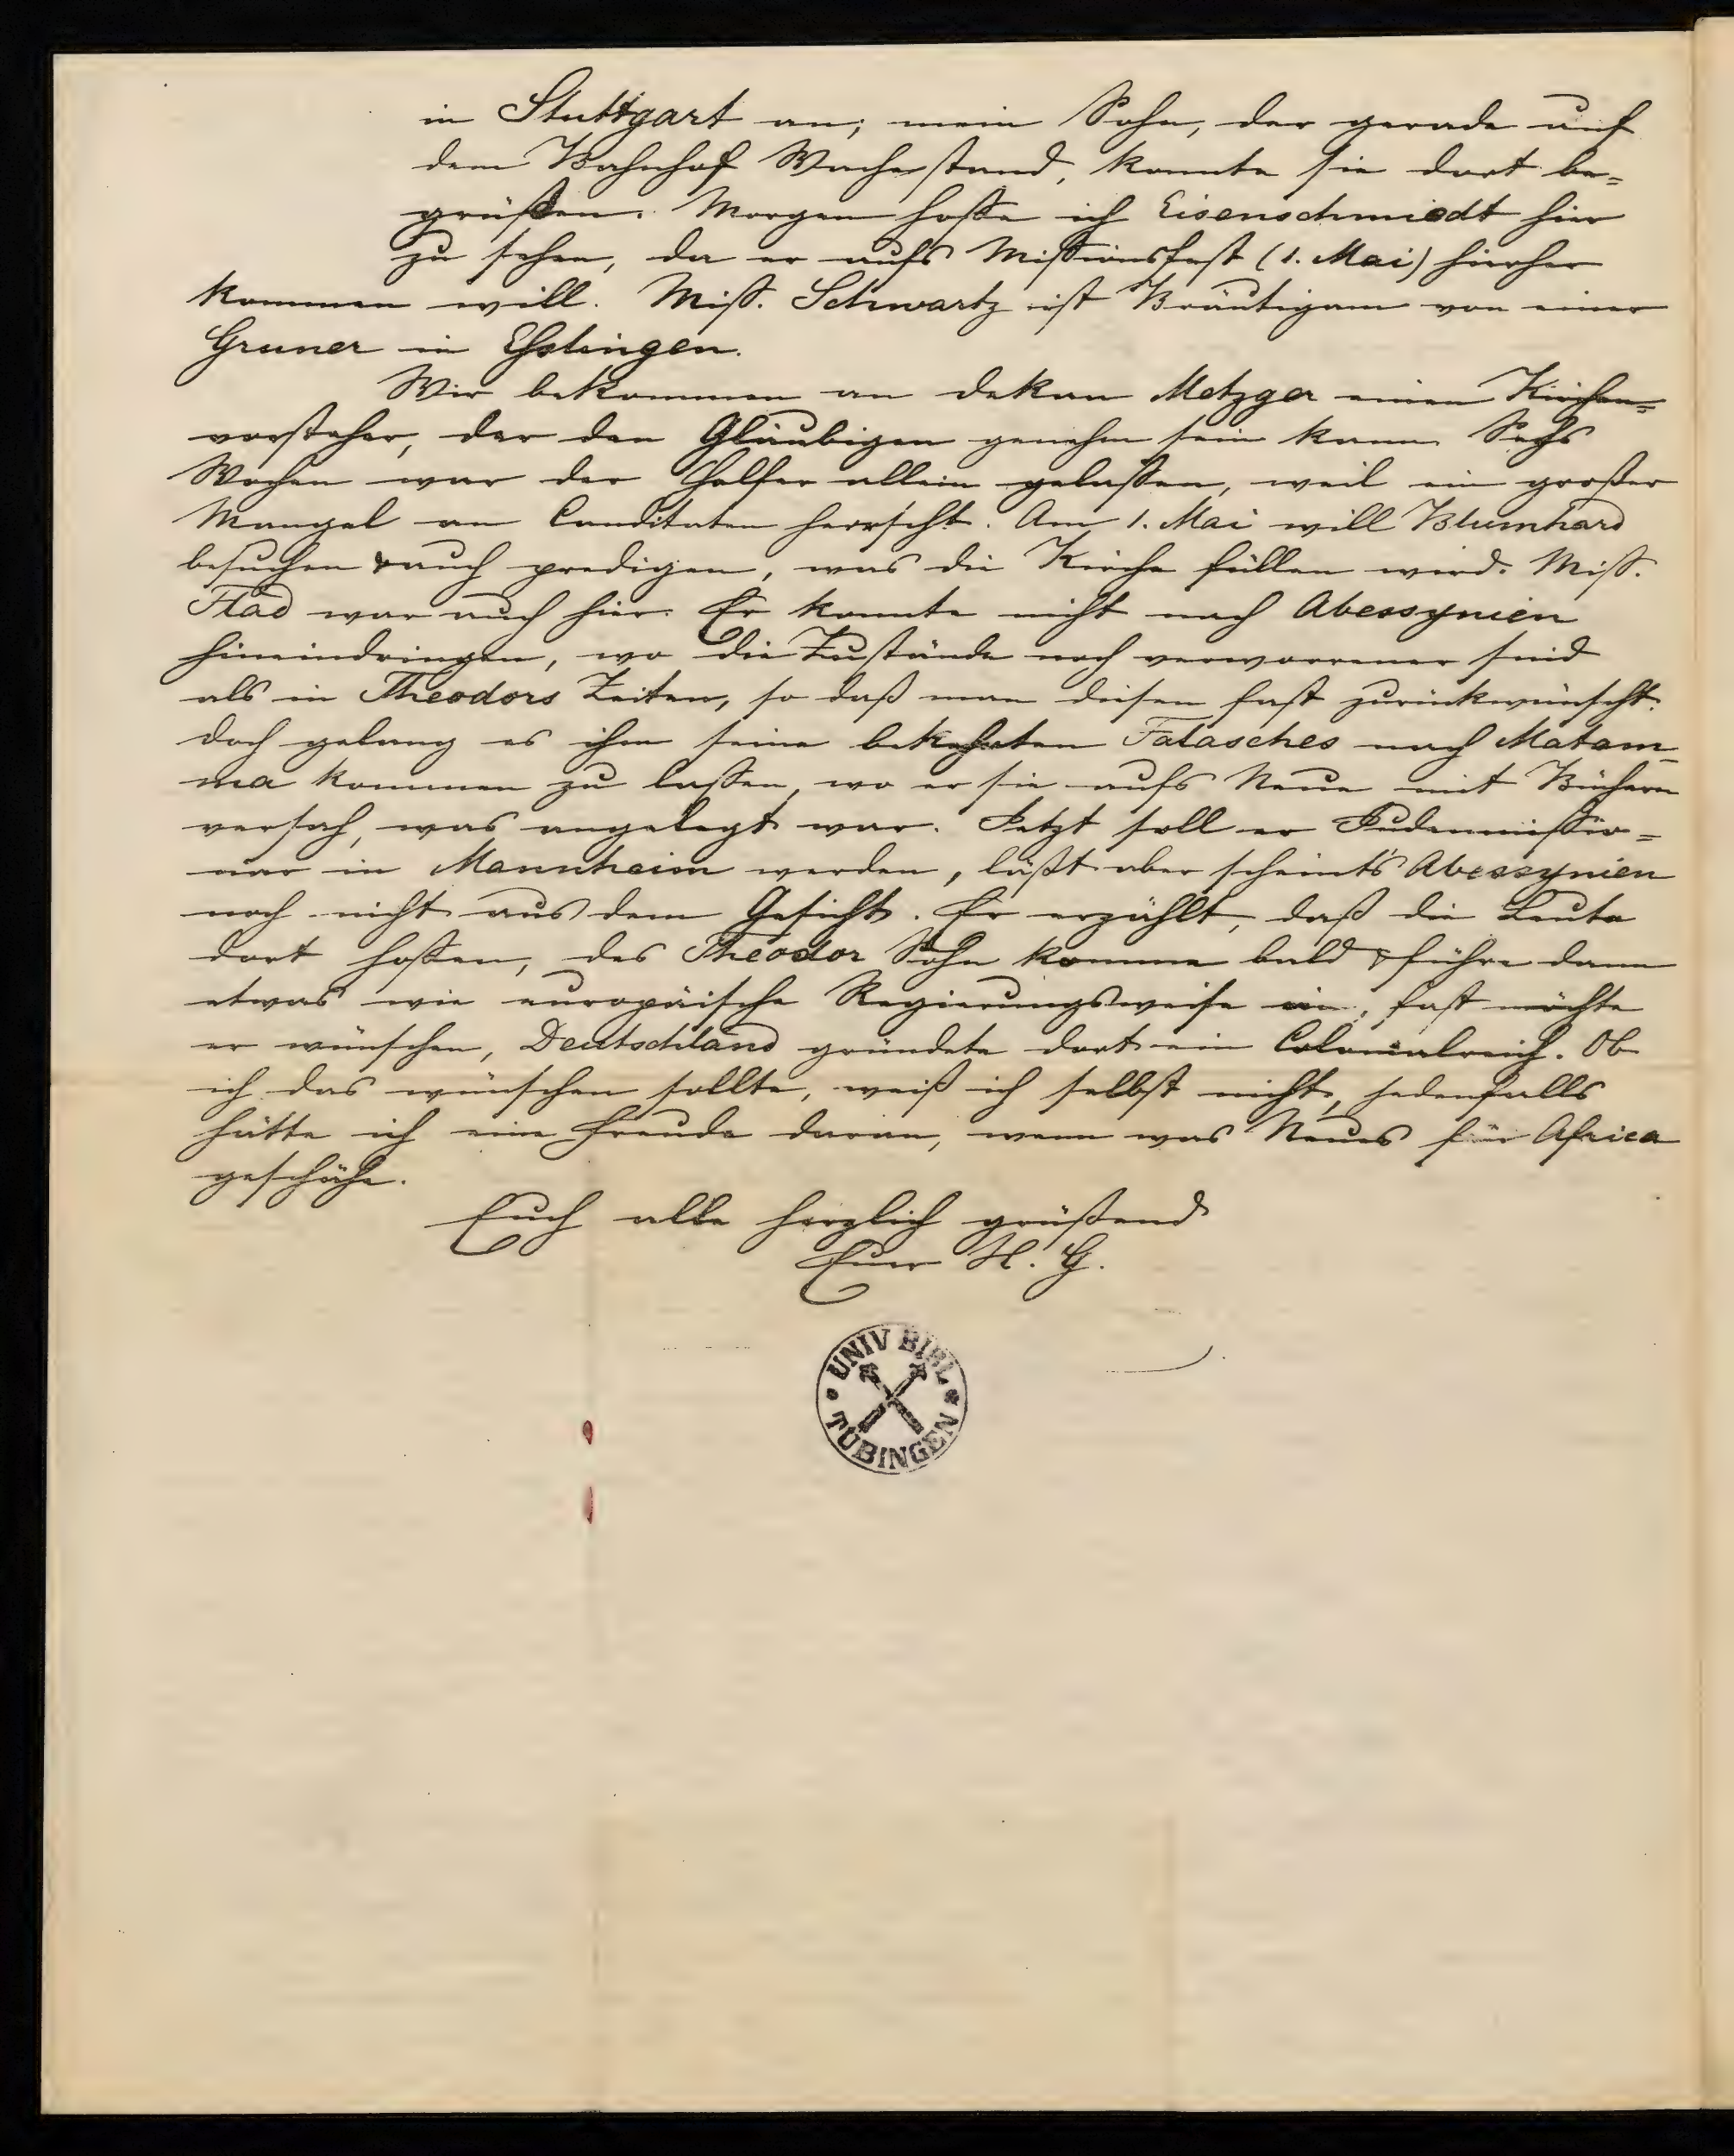 in Stuttgart an; mein Sohn, der gerade auf
dem Bahnhof Wache stand, konnte sie dort be=
grüßen. Morgen hoffe ich Eisenschmiedt hier
zu sehen, da er aufs Missionsfest (1. Mai) hierher
kommen will. Miss. Schwartz ist Bräutigam von einer
Gruner in Esslingen.
Wir bekommen an Dekan Metzger einen Kirchen=
vorsteher, der den Gläubigen genehm sein kann. Sechs
Wochen war der Helfer allein gelassen, weil ein großer
Mangel an Canditaten herrscht. Am 1. Mai will Blumhard
besuchen & auch predigen, was die Kirche füllen wird. Miss.
Flad war auch hier. Er konnte nicht nach Abessynien
hineindringen, wo die Zustände noch verworrener sind
als in Theodors Zeiten, so daß man diesen fast zurückwünscht.
Doch gelang es ihm seine bekehrten Falasches nach Matam=
ma kommen zu lassen, wo er sie aufs Neue mit Büchern
versah, was angelegt war. Jetzt soll er Judenmissio=
nar in Mannheim werden, läßt aber scheint's Abessynien
noch nicht aus dem Gesicht. Er erzählt, daß die Leute
dort hoffen, des Theodor Sohn komme bald & führe dann
etwas wie europäische Regierungsweise ein, fast möchte
er wünschen, Deutschland gründete dort ein Colonialreich. Ob
ich das wünschen sollte, weiß ich selbst nicht, jedenfalls
hätte ich eine Freude daran, wenn was Neues für Africa
geschähe.
Euch alle herzlich grüßend
Euer H. G.
UNIV BIBL
TÜBINGEN